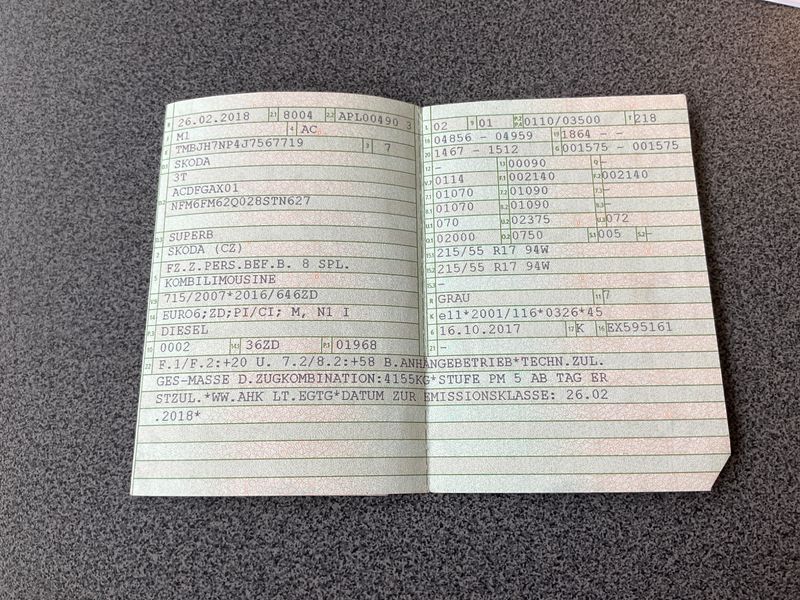 B 26.02.2018 2.1 8004 2.2 APL00490 3
J M1 4 AC
E TMBJH7NP4J7567719 3 7
D.1 SKODA
D.2 3T
ACDFGAX01
NFM6FM62Q028STN627
D.3 SUPERB
2 SKODA (CZ)
5 FZ.Z.PERS.BEF.B. 8 SPL.
KOMBILIMOUSINE
V.9 715/2007*2016/646ZD
14 EURO6;ZD;PI/CI; M, N1 I
P.3 DIESEL
10 0002 14.1 36ZD P.1 01968
L 02 9 01 P.2 P.4 0110/03500 T 218
18 04856 - 04959 19 1864 - -
20 1467 - 1512 G 001575 - 001575
12 - 13 00090 Q -
V.7 0114 F.1 002140 F.2 002140
7.1 01070 7.2 01090 7.3 -
8.1 01070 8.2 01090 8.3 -
U.1 070 U.2 02375 U.3 072
O.1 02000 O.2 0750 S.1 005 S.2 -
15.1 215/55 R17 94W
15.2 215/55 R17 94W
15.3 -
R GRAU 11 7
K e11*2001/116*0326*45
6 16.10.2017 17 K 16 EX595161
21 -
22 F.1/F.2:+20 U. 7.2/8.2:+58 B.ANHÄNGEBETRIEB*TECHN.ZUL.
GES-MASSE D.ZUGKOMBINATION:4155KG*STUFE PM 5 AB TAG ER
STZUL.*WW.AHK LT.EGTG*DATUM ZUR EMISSIONSKLASSE: 26.02
.2018*